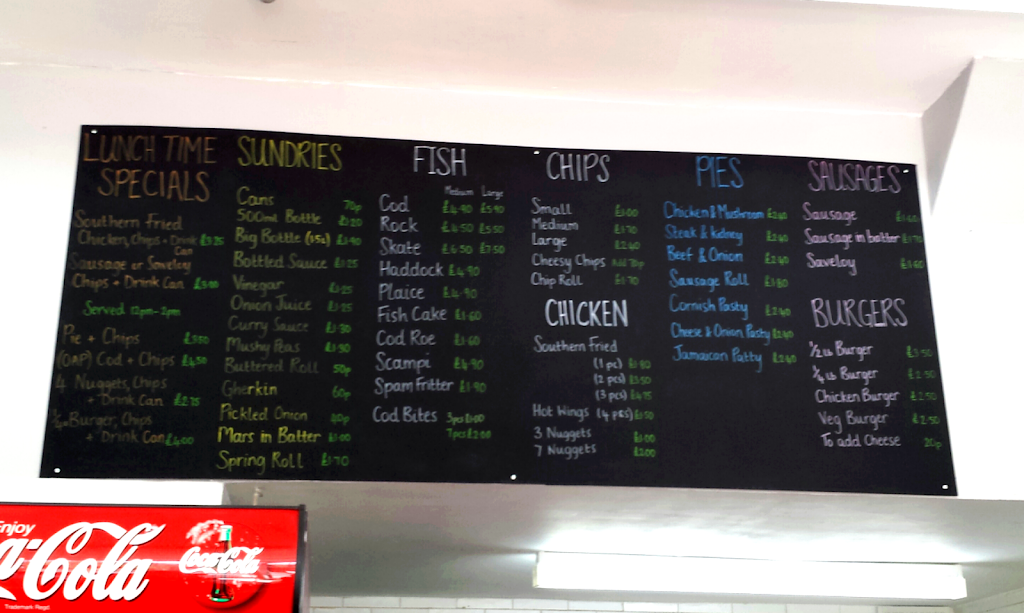 LUNCH TIME
SPECIALS
Southern Fried
Chicken, Chips + Drink
Can
Sausage or Saveloy
Chips + Drink Can £3.00
Served 12pm-2pm
Pie + Chips
(OAP) Cod + Chips
4 Nuggets, Chips
+ Drink Can
Burger, Chips
+ Drink Can £4.00
SUNDRIES
Cans 70p
500ml Bottle £1.20
Big Bottle
Bottled Sauce £1.25
Vinegar
Onion Juice
Curry Sauce
Mushy Peas
Buttered Roll 50p
Gherkin 60p
Pickled Onion 40p
Mars in Batter £1.00
Spring Roll £1.70
FISH
Medium Large
Cod £4.90 £5.90
Rock £4.50 £5.50
Skate £6.50 £7.50
Haddock £4.90
Plaice £4.90
Fish Cake £1.60
Cod Roe £1.60
Scampi £4.90
Spam Fritter £1.90
Cod Bites 3pcs £1.00
7pcs £2.00
CHIPS
Small £1.00
Medium £1.70
Large
Cheesy Chips Add 70p
Chip Roll £1.70
CHICKEN
Southern Fried
(1 pc)
(2 pcs)
(3 pcs)
Hot Wings (4 pcs)
3 Nuggets £1.00
7 Nuggets £2.00
PIES
Chicken & Mushroom
Steak & Kidney
Beef & Onion
Sausage Roll
Cornish Pasty
Cheese & Onion Pasty
Jamaican Patty
SAUSAGES
Sausage
Sausage in batter
Saveloy
BURGERS
1/2 lb Burger
1/4 lb Burger £2.50
Chicken Burger £2.50
Veg Burger £2.50
To add Cheese 20p
Enjoy
Coca-Cola
Coca-Cola
Trademark Regd